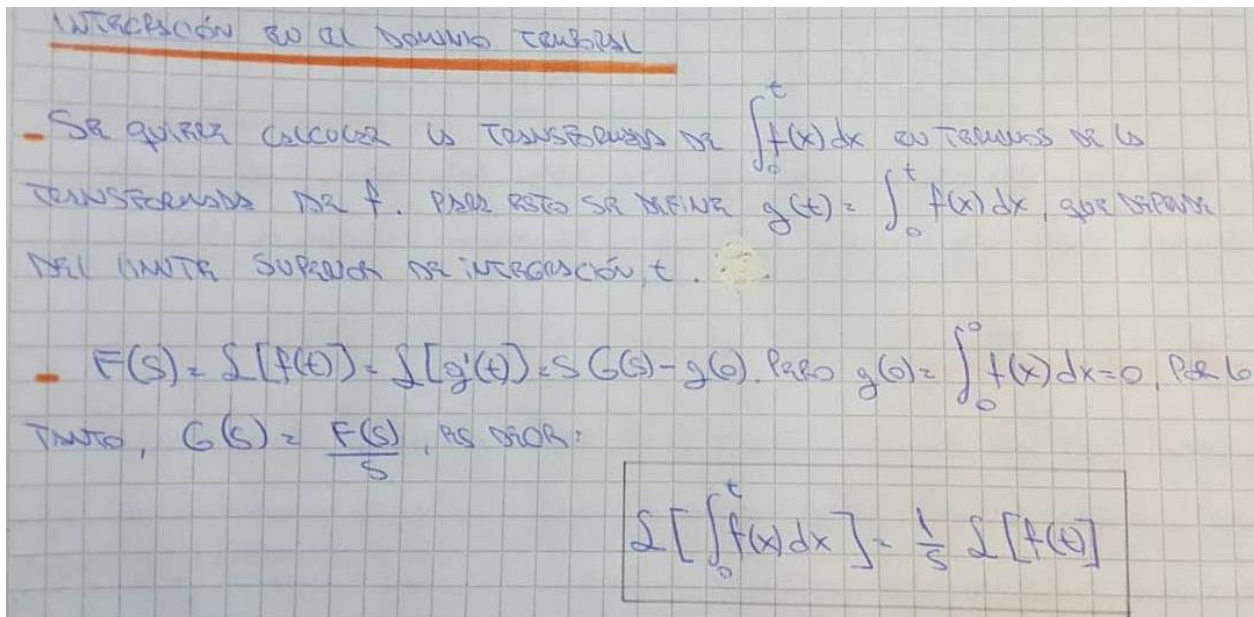 INTEGRACIÓN EN EL DOMINIO TEMPORAL
- SE QUIERE CALCULAR LA TRANSFORMADA DE ∫₀ᵗ f(x) dx EN TERMINOS DE LA
TRANSFORMADA DE f. PARA ESTO SE DEFINE g(t) = ∫₀ᵗ f(x) dx, QUE DEPENDE
DEL LIMITE SUPERIOR DE INTEGRACIÓN, t.
- F(S) = ℒ[f(t)] = ℒ[g'(t)] = S G(S) - g(0). PERO g(0) = ∫₀⁰ f(x) dx = 0, POR LO
TANTO, G(S) = F(S)/S, ES DECIR:
ℒ[∫₀ᵗ f(x) dx] = 1/S ℒ[f(t)]